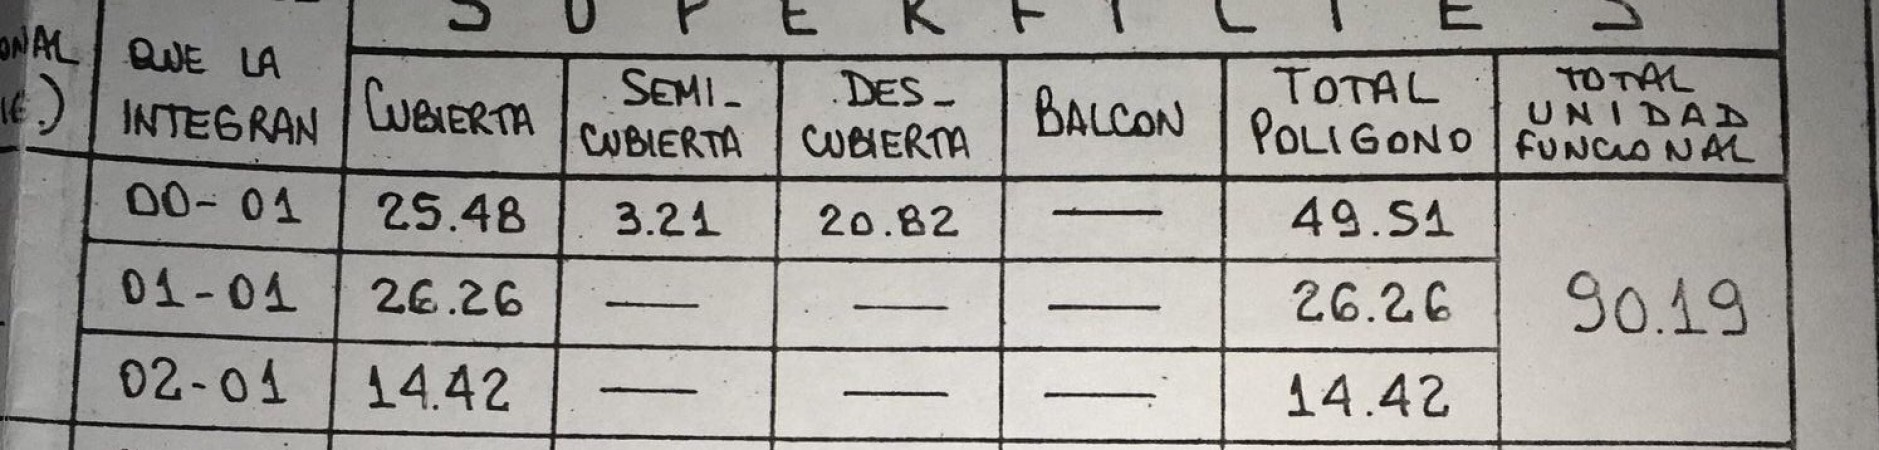 SUPERFICIES
ONAL QUE LA INTEGRAN CUBIERTA SEMI- CUBIERTA DES- CUBIERTA BALCON TOTAL POLIGONO TOTAL UNIDAD FUNCIONAL
00-01 25.48 3.21 20.82 — 49.51 90.19
01-01 26.26 — — — 26.26
02-01 14.42 — — — 14.42